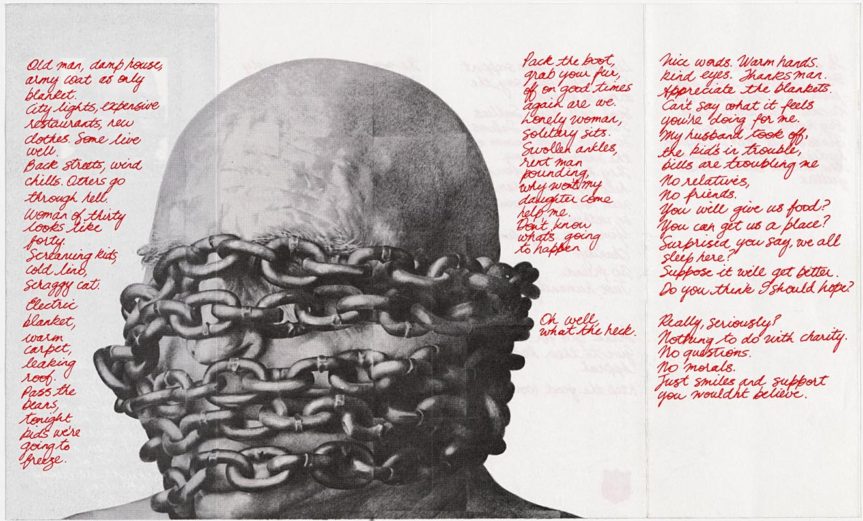 Old man, damp house,
army coat as only
blanket.
City lights, expensive
restaurants, new
clothes. Some live
well.
Back streets, wind
chills. Others go
through hell.
Woman of thirty
looks like
forty.
Screaming kids,
cold lino,
scraggy cat.
Electric
blanket,
warm
carpet,
leaking
roof.
Pass the
beans,
tonight
kids we're
going to
freeze.
Pack the boot,
grab your fur,
off on good times
again are we.
Lonely woman,
solitary sits.
Swollen ankles,
rent man
pounding,
why won't my
daughter come
help me.
Don't know
whats going
to happen
Oh well,
what the heck.
Nice words. Warm hands.
kind eyes. Thanks man.
Appreciate the blankets.
Can't say what it feels
you're doing for me.
My husband took off,
the kids in trouble,
bills are troubling me
No relatives,
No friends.
You will give us food?
You can get us a place?
Surprised, you say, we all
sleep here?
Suppose it will get better.
Do you think I should hope?
Really, seriously?
Nothing to do with charity.
No questions.
No morals.
Just smiles and support
you wouldnt believe.